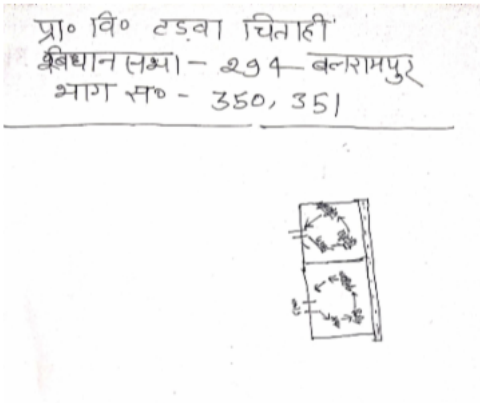 प्रा० वि० टडवा चिताही
विधान सभा - 294 - बलरामपुर
भाग स० - 350, 351